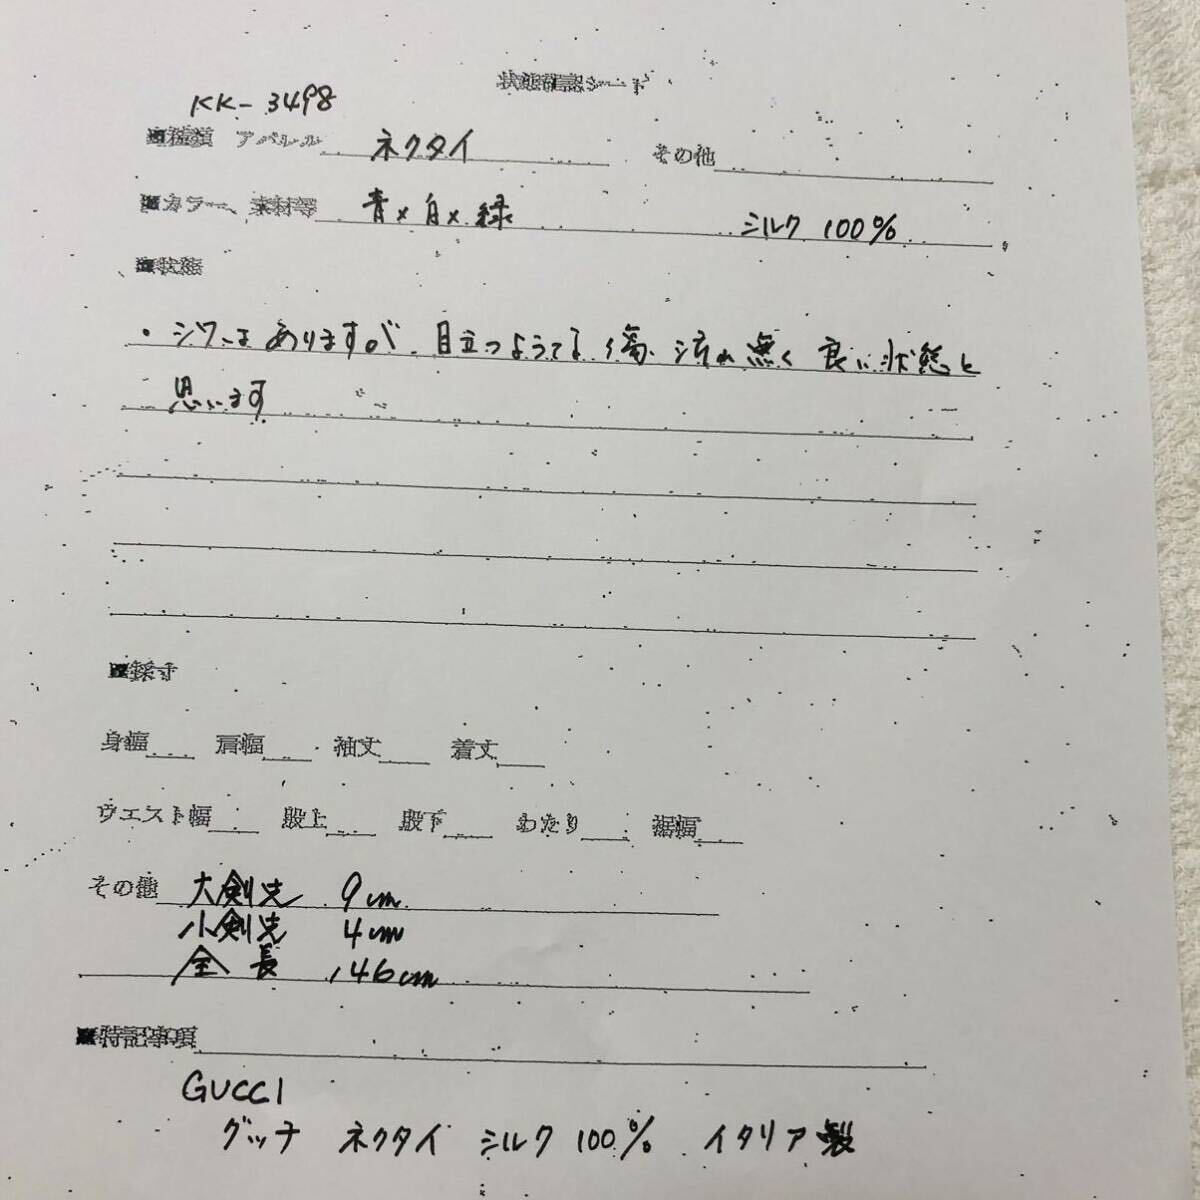 状態確認シート
KK-3498
■種類 アパレル ネクタイ その他
■カラー、素材等 青×白×緑 シルク 100%
■状態
・シワはありますが、目立つような傷、汚れ無く良い状態と
思います
■採寸
身幅 肩幅 袖丈 着丈
ウエスト幅 股上 股下 わたり 裾幅
その他 大剣先 9cm
小剣先 4cm
全長 146cm
■特記事項
GUCCI
グッチ ネクタイ シルク 100% イタリア製